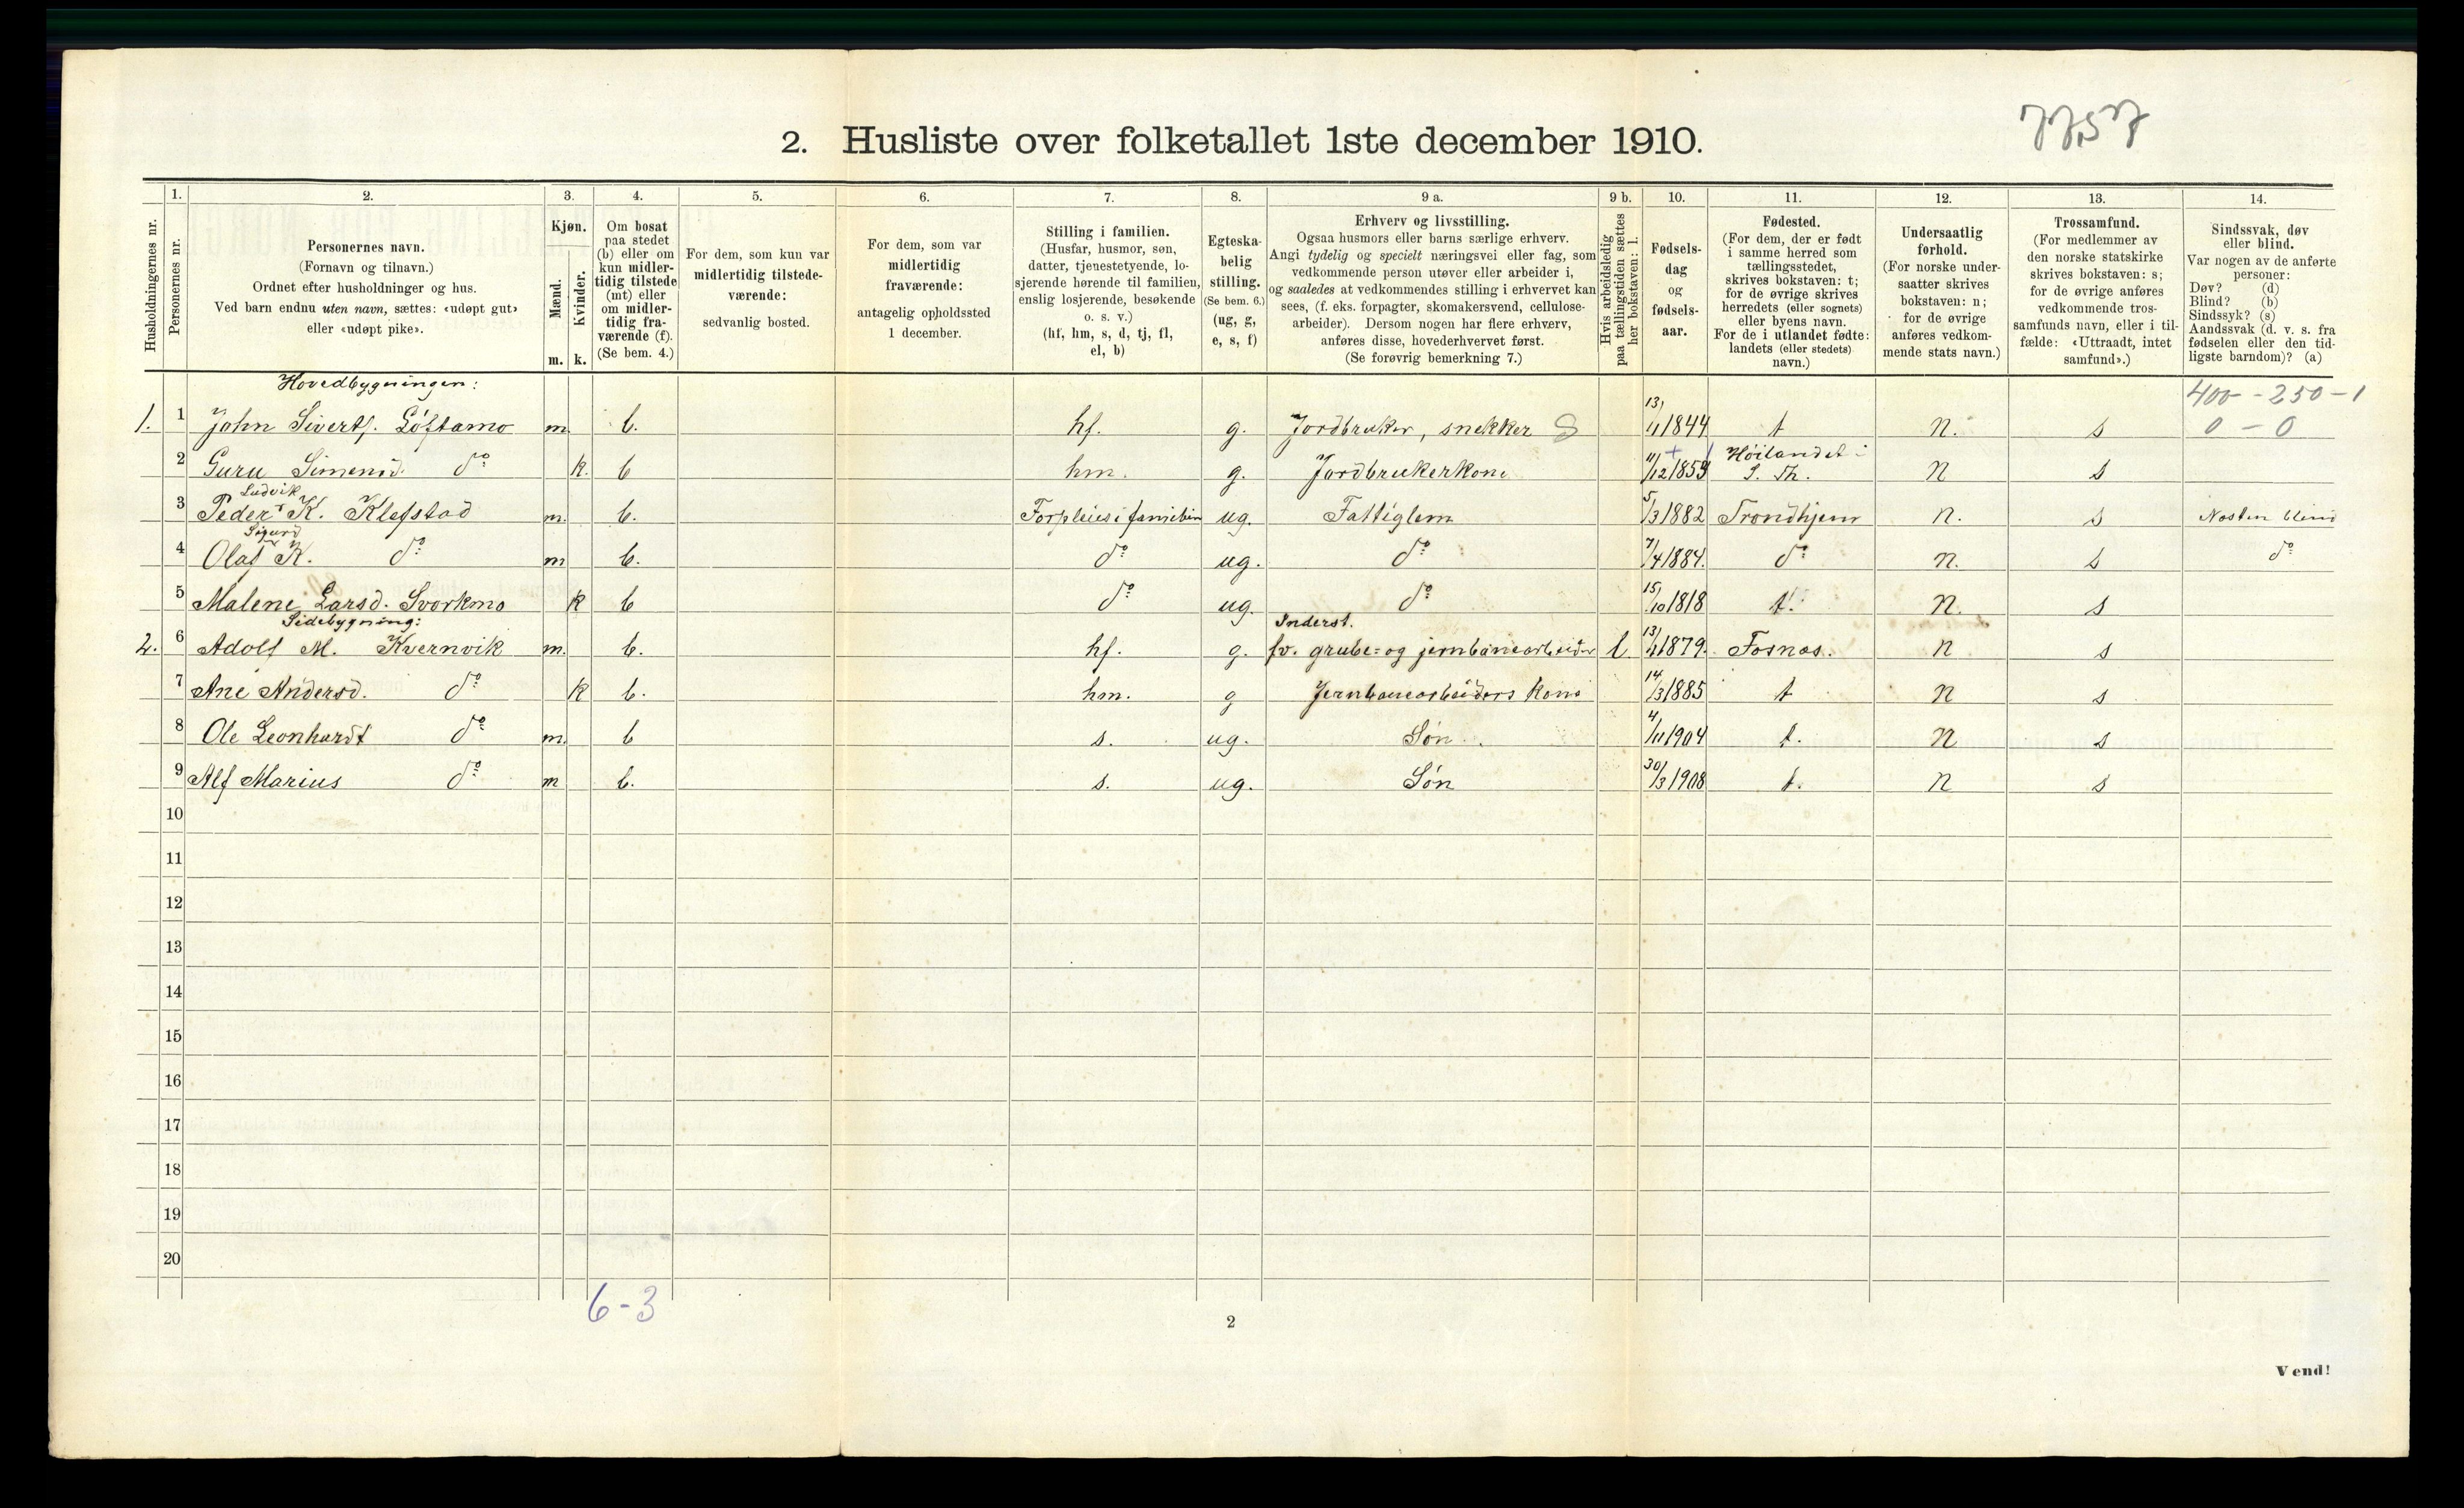 7757
2. Husliste over folketallet 1ste december 1910.
1. 2. 3. 4. 5. 6. 7. 8. 9 a. 9 b. 10. 11. 12. 13. 14.
Husholdningernes nr.
Personernes nr.
Personernes navn.
(Fornavn og tilnavn.)
Ordnet efter husholdninger og hus.
Ved barn endnu uten navn, sættes: «udøpt gut»
eller «udøpt pike».
Kjøn.
Mænd.
Kvinder.
m. k.
Om bosat
paa stedet
(b) eller om
kun midler-
tidig tilstede
(mt) eller
om midler-
tidig fra-
værende (f).
(Se bem. 4.)
For dem, som kun var
midlertidig tilstede-
værende:
sedvanlig bosted.
For dem, som var
midlertidig
fraværende:
antagelig opholdssted
1 december.
Stilling i familien.
(Husfar, husmor, søn,
datter, tjenestetyende, lo-
sjerende hørende til familien,
enslig losjerende, besøkende
o. s. v.)
(hf, hm, s, d, tj, fl,
el, b)
Egteska-
belig
stilling.
(Se bem. 6.)
(ug, g,
e, s, f)
Erhverv og livsstilling.
Ogsaa husmors eller barns særlige erhverv.
Angi tydelig og specielt næringsvei eller fag, som
vedkommende person utøver eller arbeider i,
og saaledes at vedkommendes stilling i erhvervet kan
sees, (f. eks. forpagter, skomakersvend, cellulose-
arbeider). Dersom nogen har flere erhverv,
anføres disse, hovederhvervet først.
(Se forøvrig bemerkning 7.)
Hvis arbeidsledig
paa tællingstiden sættes
her bokstaven: l.
Fødsels-
dag
og
fødsels-
aar.
Fødested.
(For dem, der er født
i samme herred som
tællingsstedet,
skrives bokstaven: t;
for de øvrige skrives
herredets (eller sognets)
eller byens navn.
For de i utlandet fødte:
landets (eller stedets)
navn.)
Undersaatlig
forhold.
(For norske under-
saatter skrives
bokstaven: n;
for de øvrige
anføres vedkom-
mende stats navn.)
Trossamfund.
(For medlemmer av
den norske statskirke
skrives bokstaven: s;
for de øvrige anføres
vedkommende tros-
samfunds navn, eller i til-
fælde: «Uttraadt, intet
samfund».)
Sindssvak, døv
eller blind.
Var nogen av de anførte
personer:
Døv? (d)
Blind? (b)
Sindssyk? (s)
Aandssvak (d. v. s. fra
fødselen eller den tid-
ligste barndom)? (a)
Hovedbygningen:
400 - 250 - 1
1. 1 John Sivertf. Løftamo m. b. hf. g. Jordbruker, snekker 13/11 1844 t n. s 0 - 0
Høilandet i
2 Guru Simensd. do k. b hm. g. Jordbrukerkone 11/12 1859 S. Th. n s
Ludvik
3 Peder K. Klefstad m. b. Forpleies i familien ug. Fattiglem 5/3 1882 Trondhjem n. s Næsten blind
Sigurd
4 Olaf K. do m b. do ug. do 7/4 1884. do n. s do
5 Malene Larsd. Svorkmo k b do ug. do 15/10 1818 t. n. s
Sidebygning: Inderst.
2. 6 Adolf M. Kvernvik m. b. hf. g. fv. grube- og jernbanearbeider l. 13/11 1879. Fosnæs. n s
7 Ane Andersd. do k b. hm. g Jernbanearbeiders kone 14/3 1885 t n s
8 Ole Leonhardt do m. b s. ug. Søn 4/11 1904 t. n s
9 Alf Marius do m b. s. ug. Søn 30/3 1908 t. n s
10
11
12
13
14
15
16
17
18
19
20
6-3
2
Vend!